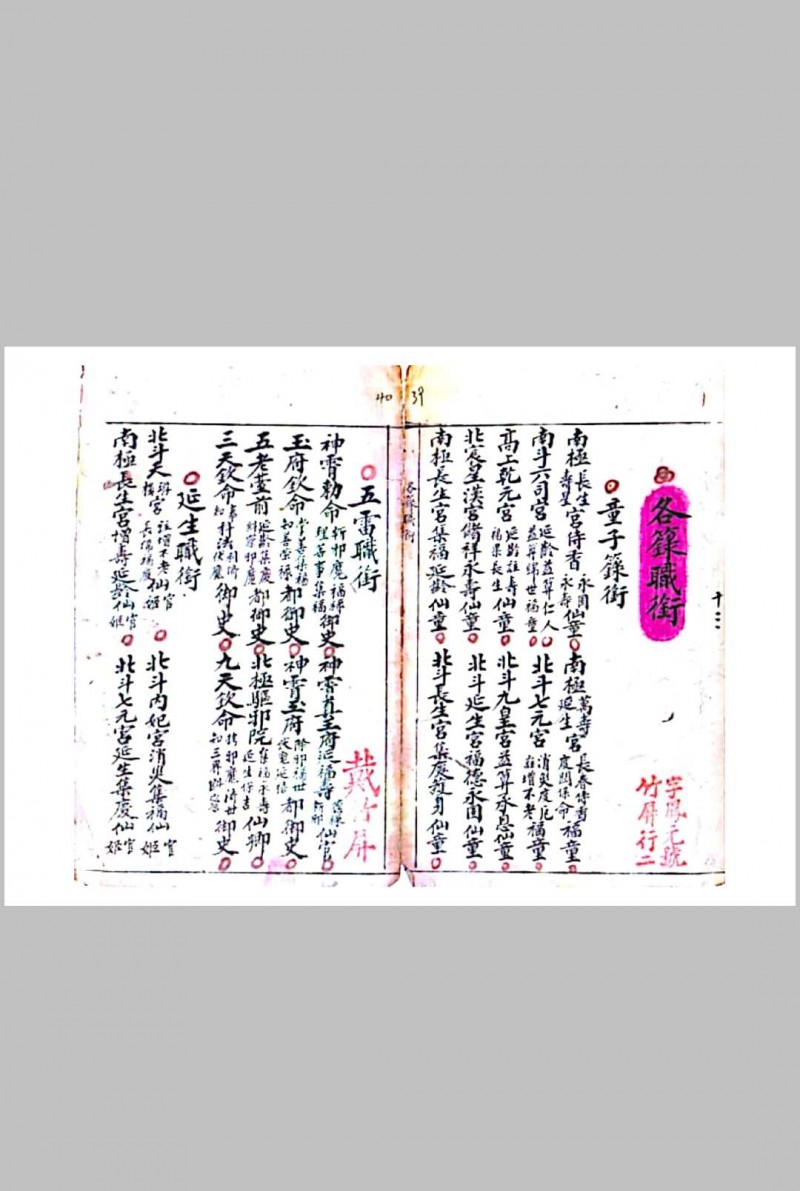 39
十三
各籙職銜
字鳳元號
竹屏行二
童子籙銜
南極長生壽星宮侍香永固永壽仙童 南極萬壽延生宮長春侍香度關保命福童
南斗六司宮延齡益算仁人益算綿世福童 北斗七元宮消災度厄註增不老福童
高上乾元宮延齡註壽福果長生仙童 北斗九皇宮益算承恩仙童
北辰皇漢宮儲祥永壽仙童 北斗延生宮福德永固仙童
南極長生宮集福延齡仙童 北斗長生宮集慶護身仙童
各籙職銜
40
五雷職銜
戴竹屏
神霄勅命斬邪魔福祿理善事集福御史 神霄真王府延福壽仙官
玉府欽命掌善集福知善崇祿都御史 神霄玉府除邪福世伏鬼延禧都御史
五老臺前延齡集慶都御史 北極驅邪院集福永壽延生保吉仙卿
三天欽命御史 九天欽命御史
延生職銜
北斗天宮註增不老長保福慶仙官姬 北斗內妃宮消災集福仙官姬
南極長生宮增壽延齡仙官姬 北斗七元宮延生集慶仙官姬